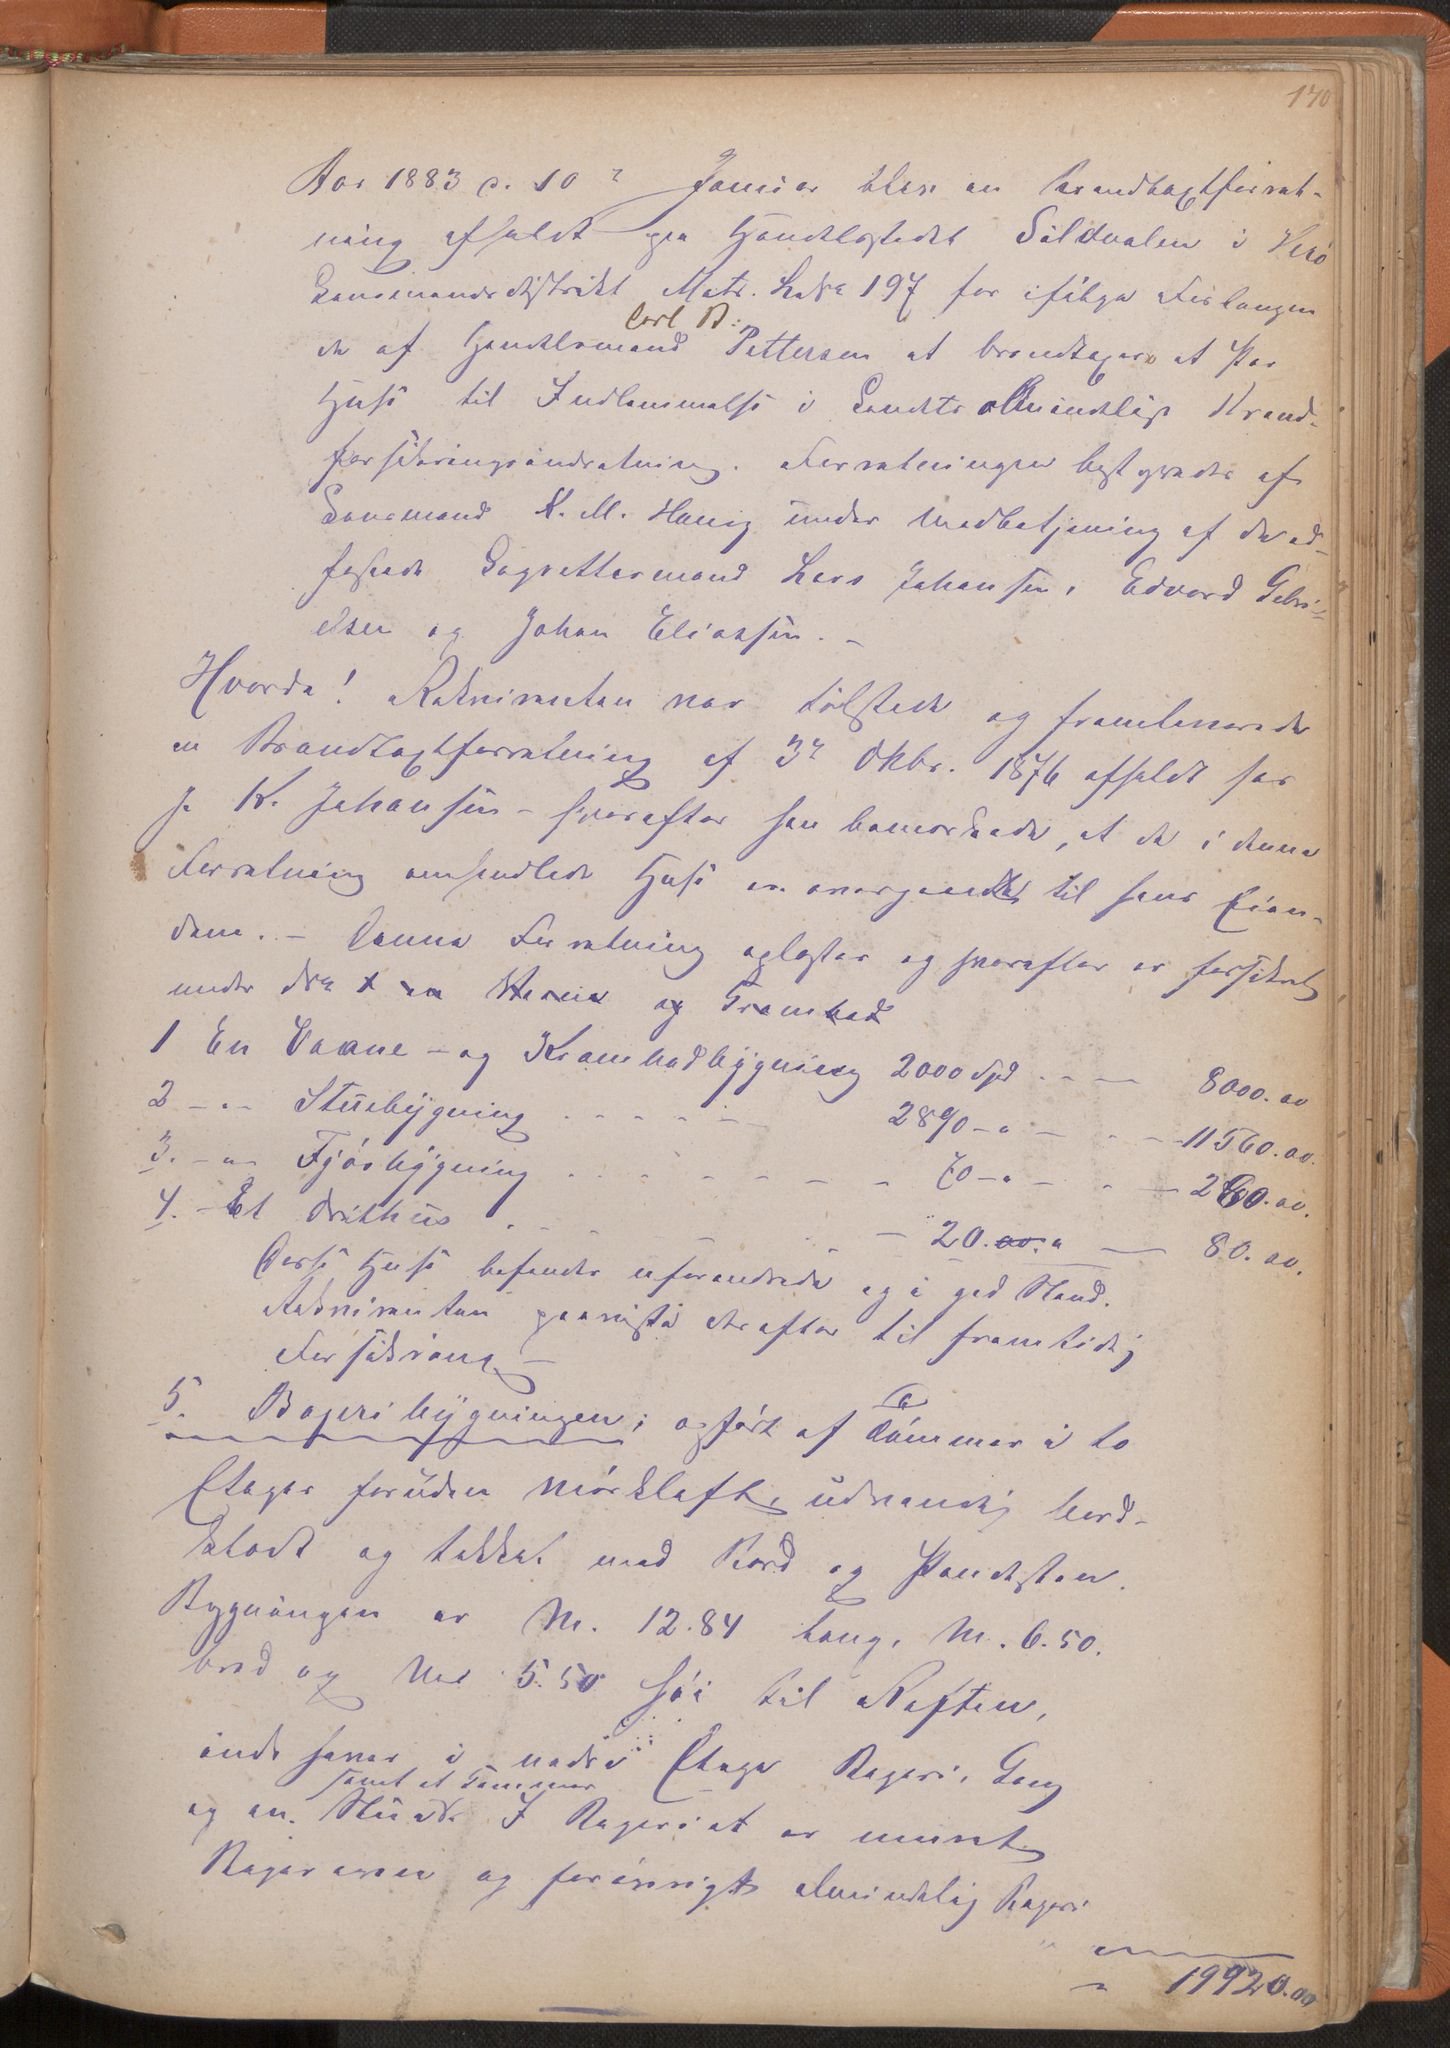 170
Aar 1883 d. 10 Januar blev en Brandtaxtforret-
ning afholdt paa Handelsstedet Sildvalen i Herö
Lensmandsdistrikt Matr. Løbe 197 for ifölge Forlangen
de af Handelsmand Carl B: Pettersen at brandtaxere et Par
Huse til Indlemmelse i Landets almindelige Brand-
forsikringsindretning. Forretningen bestyredes af
Lensmand K. M. Havig under Medbetjening af de ed-
fæstede Lagrettesmænd Lars Johansen, Edvard Gabri-
elsen og Johan Eliassen. -
Hvorda! Rekvirenten var tilstede og fremleverede
en Brandtaxtforretning af 3 Oktbr. 1876 afholdt for
K. Johansen - hvorefter han bemærkede, at de i denne
Forretning omhandlede Huse er overgaaede til hans Eien-
dom. - Denne Forretning oplæstes og hvorefter er forsikret
under No 1 en Vaane og Krambod
1 En Vaane - og Krambodbygning 2000 Spd . . - - 8000. 00
2 - " - Stuebygning . . . . . 2890 - " - . - 11560. 00.
3. - " - Fjösbygning . . . . - - - 70 - " - . - 280. 00.
4. - Et Drithus . . . - 20. 00. " - 80. 00.
Disse Huse befandtes uforandrede og i god Stand.
Rekvirenten paaviste derefter til fremtidig
Forsikring -
5. Bageribygningen; opfört af Tömmer i to
Etager foruden Mörkloft, udvendig bord-
klædt og tækket med Bord og Pandesten.
Bygningen er M. 12.84 lang, M. 6.50.
bred og M. 5.50 höi til Raften,
indehaver i nedre Etage Bageri, Gang
samt et Kammer
og en Stue. I Bageriet er muret
Bagerovn og forövrigt almindelig Bageri
19920.00